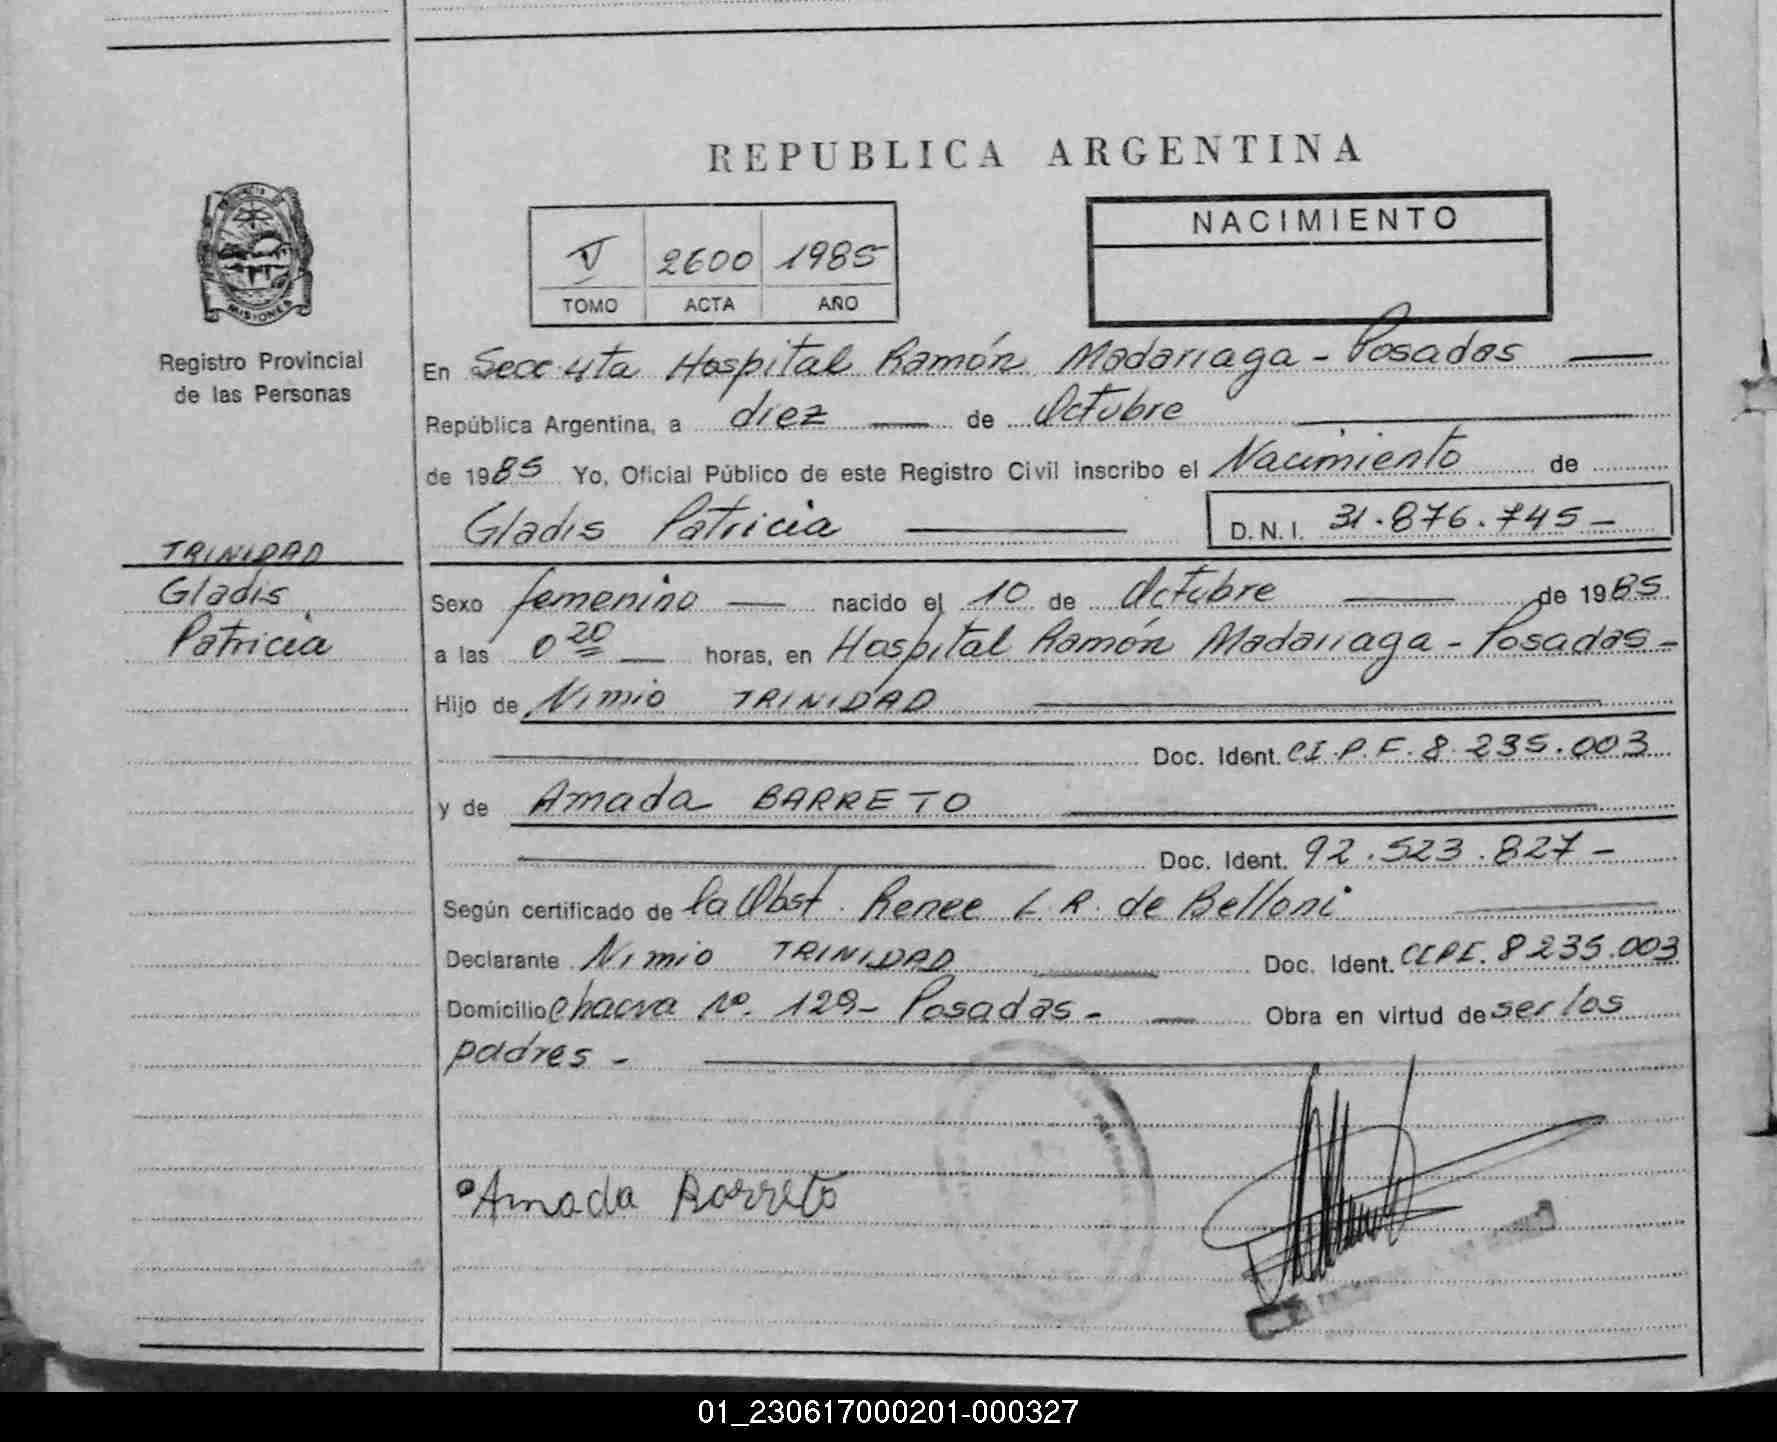 REPUBLICA ARGENTINA
NACIMIENTO
V 2600 1985
TOMO ACTA AÑO
MISIONES
Registro Provincial
de las Personas
En Secc 4ta Hospital Ramón Madariaga - Posadas
República Argentina, a diez de Octubre
de 1985 Yo, Oficial Público de este Registro Civil inscribo el Nacimiento de
Gladis Patricia D.N.I. 31.876.745-
TRINIDAD
Gladis
Patricia
Sexo femenino nacido el 10 de Octubre de 1985
a las 0 20 horas, en Hospital Ramón Madariaga - Posadas-
Hijo de Nimio TRINIDAD
Doc. Ident. CI.P.F. 8.235.003
y de Amada BARRETO
Doc. Ident. 92.523.827-
Según certificado de la Obst. Renee L.R. de Belloni
Declarante Nimio TRINIDAD Doc. Ident. 8 235.003
Domicilio Chacra Nº. 129- Posadas- Obra en virtud de ser los
padres -
Amada Barreto
01_230617000201-000327